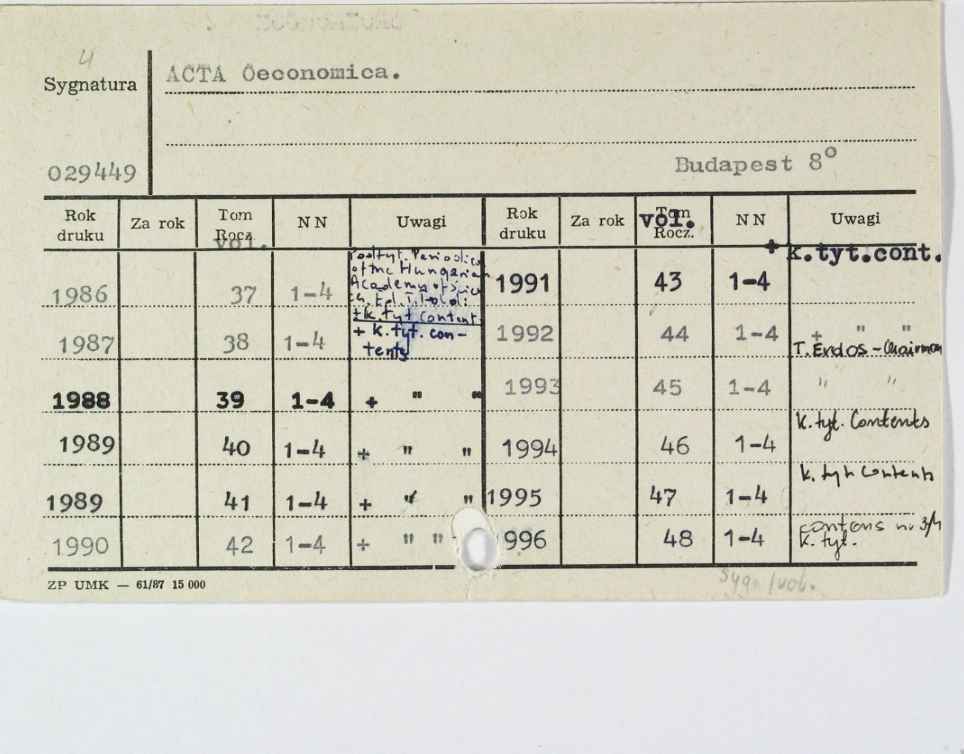 4
Sygnatura
ACTA Öeconomica.
029449
Budapest 8°
Rok druku Za rok Tom Rocz. vol. NN Uwagi Rok druku Za rok Tom Rocz. vol. NN Uwagi
+ k.tyt.cont.
Podtyt. Periodica
of the Hungarian
Academy of
+ k. tyt content
1986 37 1-4 1991 43 1-4
+ k. tyt. con-
tents
1987 38 1-4 1992 44 1-4 + " "
T. Erdos - Chairman
1988 39 1-4 + " " 1993 45 1-4 " "
1989 40 1-4 + " " 1994 46 1-4 k. tyt. Contents
1989 41 1-4 + " " 1995 47 1-4 k. tyt Contents
1990 42 1-4 + " " 996 48 1-4 contens nr 3/4
k. tyt.
ZP UMK — 61/87 15 000
Sygn/vol.